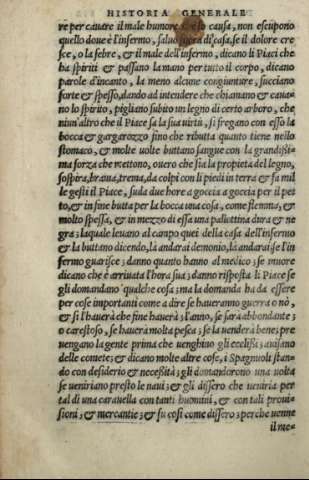 HISTORIA GENERALE
re per cauare il male humore che lo causa, non escipono
quello doue è l'infermo, saluo fuora di casa, se il dolore cre
sce, o la febre, & il male dell'infermo, dicano li Piaci che
ha spiriti & passano la mano per tutto il corpo, dicano
parole d'incanto, la meno alcune congiunture, succiano
forte & spesso, dando ad intendere che chiamano & caua
no lo spirito, pigliano subito un legno di certo arboro, che
niun'altro che il Piace sa la sua virtù, si fregano con esso la
bocca & gargarozzo fino che ributta quanto tiene nello
stomaco, & molte uolte buttano sangue con la grandissi-
ma forza che mettono, ouero che sia la propieta del legno,
sospira, brama, trema, da colpi con li piedi in terra & fa mil
le gesti il Piace, suda due hore a goccia a goccia per il pet
to, & in fine butta per la bocca una cosa, come flemma, &
molto spessa, & in mezzo di essa una pallottina dura & ne
gra; laquale leuano al campo quei della casa dell'infermo
& la buttano dicendo, là andarai demonio, là andarai se l'in
fermo guarisce; danno quanto hanno al medico; se muore
dicano che è arriuata l'hora sua; danno risposta li Piace se
gli domandano qualche cosa; ma la domanda ha da essere
per cose importanti come a dire se haueranno guerra o nò,
& si l'hauerà che fine hauerà; l'anno, se sarà abbondante;
o carestoso, se hauerà molta pesca; se la uenderà bene; pre
uengano la gente prima che uenghino gli ecclissi; auisano
delle comete; & dicano molte altre cose, i Spagnuoli stan
do con desiderio & necessità; gli domandorono una uolta
se ueniriano presto le naui; & gli dissero che ueniria per
tal dì una carauella con tanti huomini, & con tali proui-
sioni; & mercantie; & fu così come dissero; perche uenne
il me-